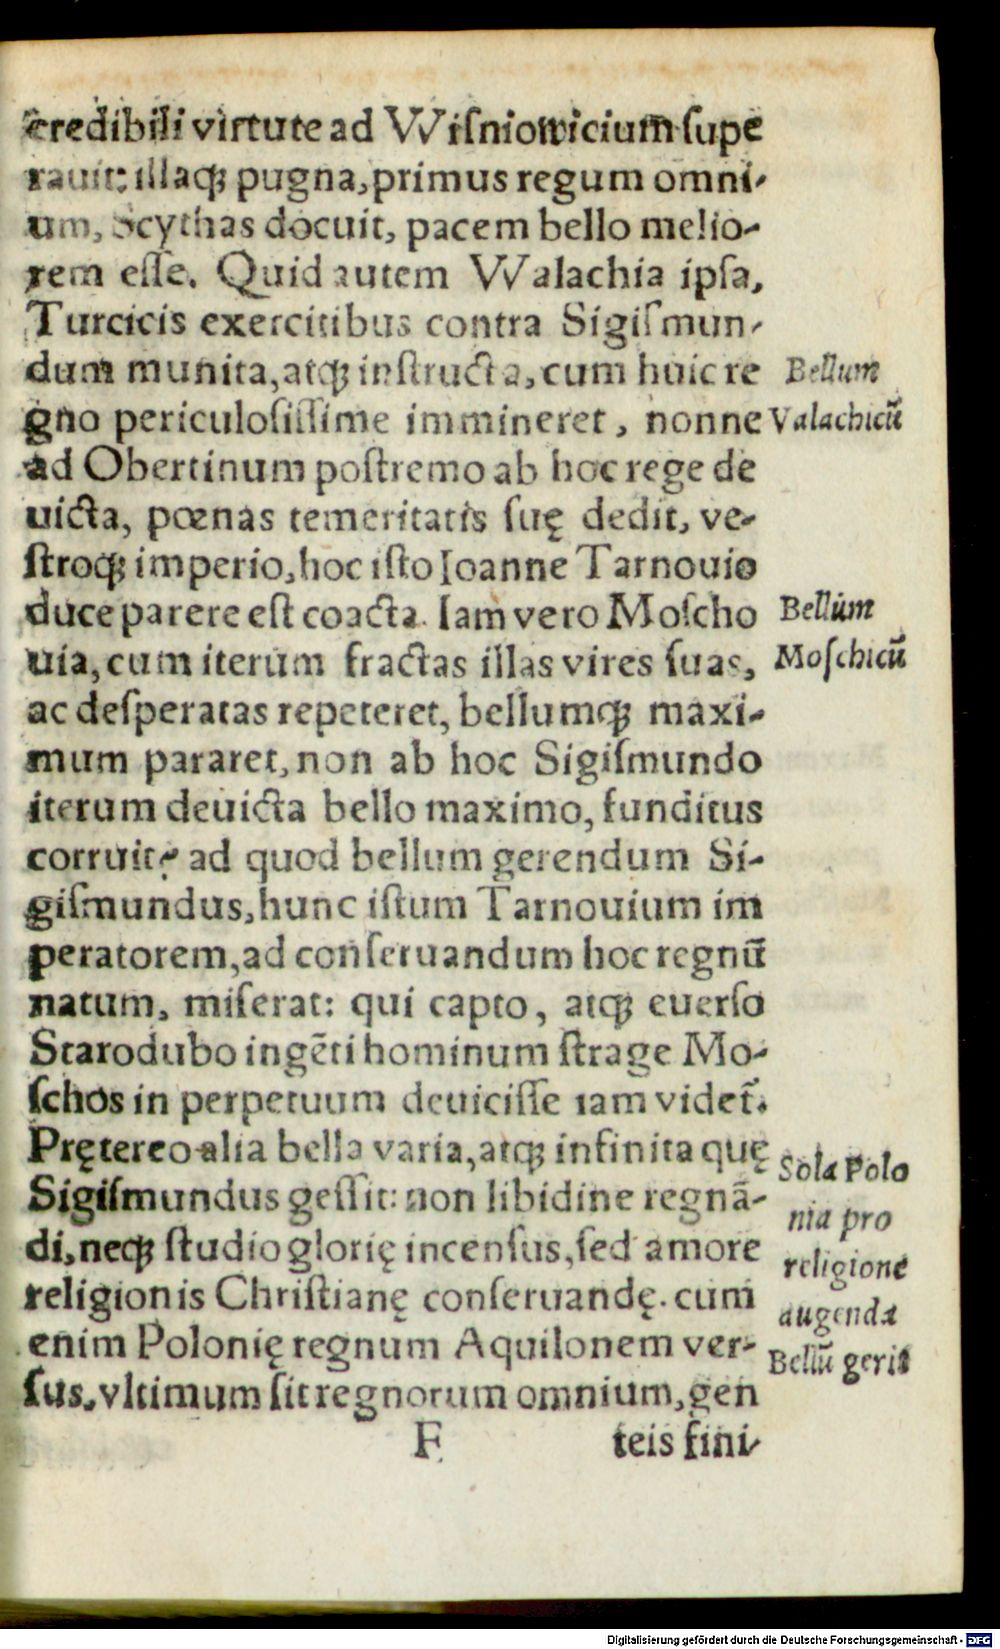 credibili virtute ad VViſniowicium ſupe
rauit: illaq́ꝫ pugna, primus regum omni-
um, Scythas docuit, pacem bello melio-
rem eſſe. Quid autem VValachia ipſa,
Turcicis exercitibus contra Sigiſmun-
dum munita, atqꝫ inſtructa, cum huic re
gno periculoſiſſime immineret, nonne
ad Obertinum poſtremo ab hoc rege de
uicta, pœnas temeritatis ſuę dedit, ve-
ſtroqꝫ imperio, hoc iſto Ioanne Tarnouio
duce parere eſt coacta. Iam vero Moſcho
uia, cum iterum fractas illas vires ſuas,
ac deſperatas repeteret, bellumqꝫ maxi-
mum pararet, non ab hoc Sigiſmundo
iterum deuicta bello maximo, funditus
corruit? ad quod bellum gerendum Si-
giſmundus, hunc iſtum Tarnouium im
peratorem, ad conſeruandum hoc regnū
natum, miſerat: qui capto, atqꝫ euerſo
Starodubo ingēti hominum ſtrage Mo-
ſchos in perpetuum deuiciſſe iam videt̃.
Prętereo alia bella varia, atqꝫ infinita quę
Sigiſmundus geſſit: non libidine regnā-
di, neqꝫ ſtudio glorię incenſus, ſed amore
religionis Chriſtianę conſeruandę. cum
enim Polonię regnum Aquilonem ver-
ſus, vltimum ſit regnorum omnium, gen
F teis fini-
Bellum
Valachicū
Bellum
Moſchicū
Sola Polo
nia pro
religione
augenda
Bellū gerit
Digitalisierung gefördert durch die Deutsche Forschungsgemeinschaft - DFG